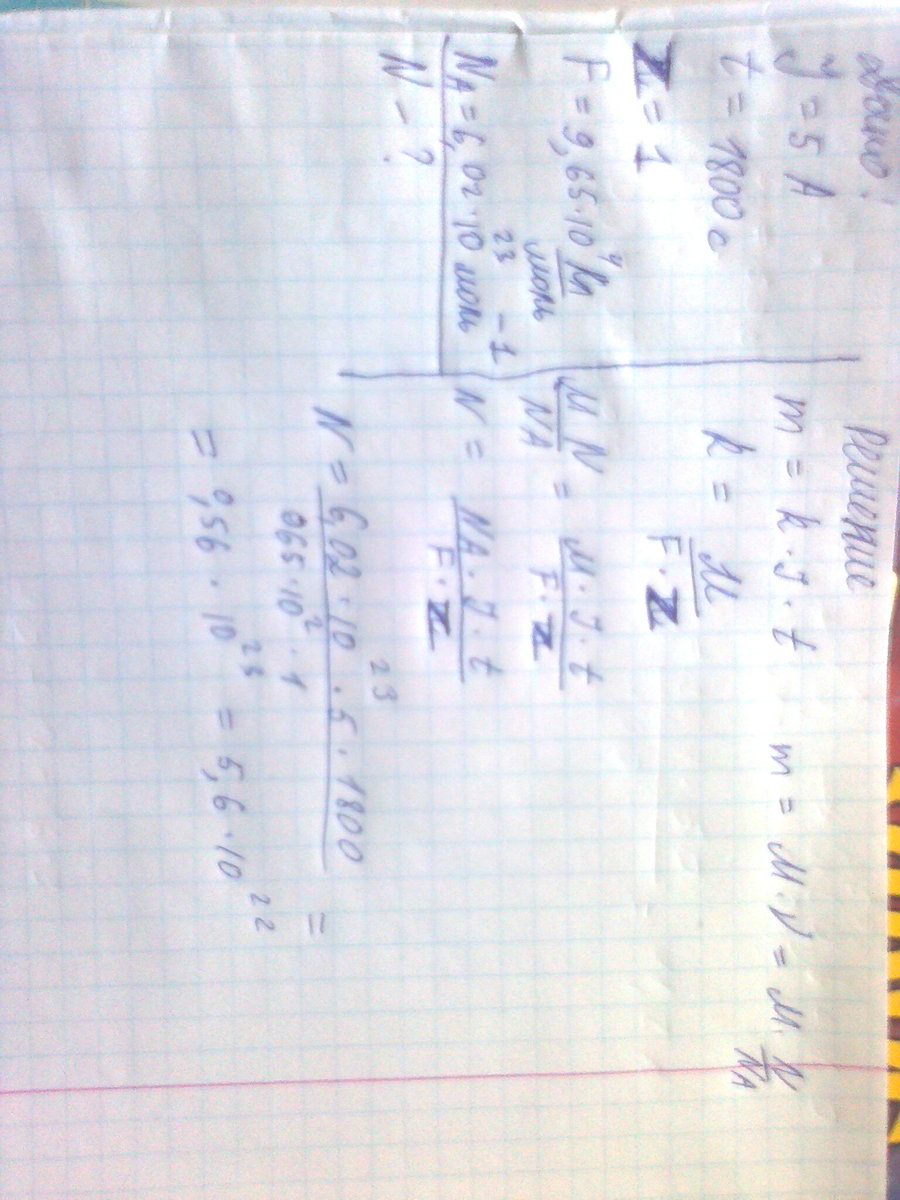 Дано:
J = 5 A
t = 1800 c
Z = 1
F = 9,65·10⁴ Кл/моль
N_A = 6,02·10²³ моль⁻¹
N - ?
Решение
m = k · J · t   m = M · ν = M · N/N_A
k = M/(F · Z)
M N/N_A = M · J · t/(F · Z)
N = N_A · J · t/(F · Z)
N = 6,02 · 10²³ · 5 · 1800/(965·10² · 1) =
= 0,56 · 10²³ = 5,6 · 10²²